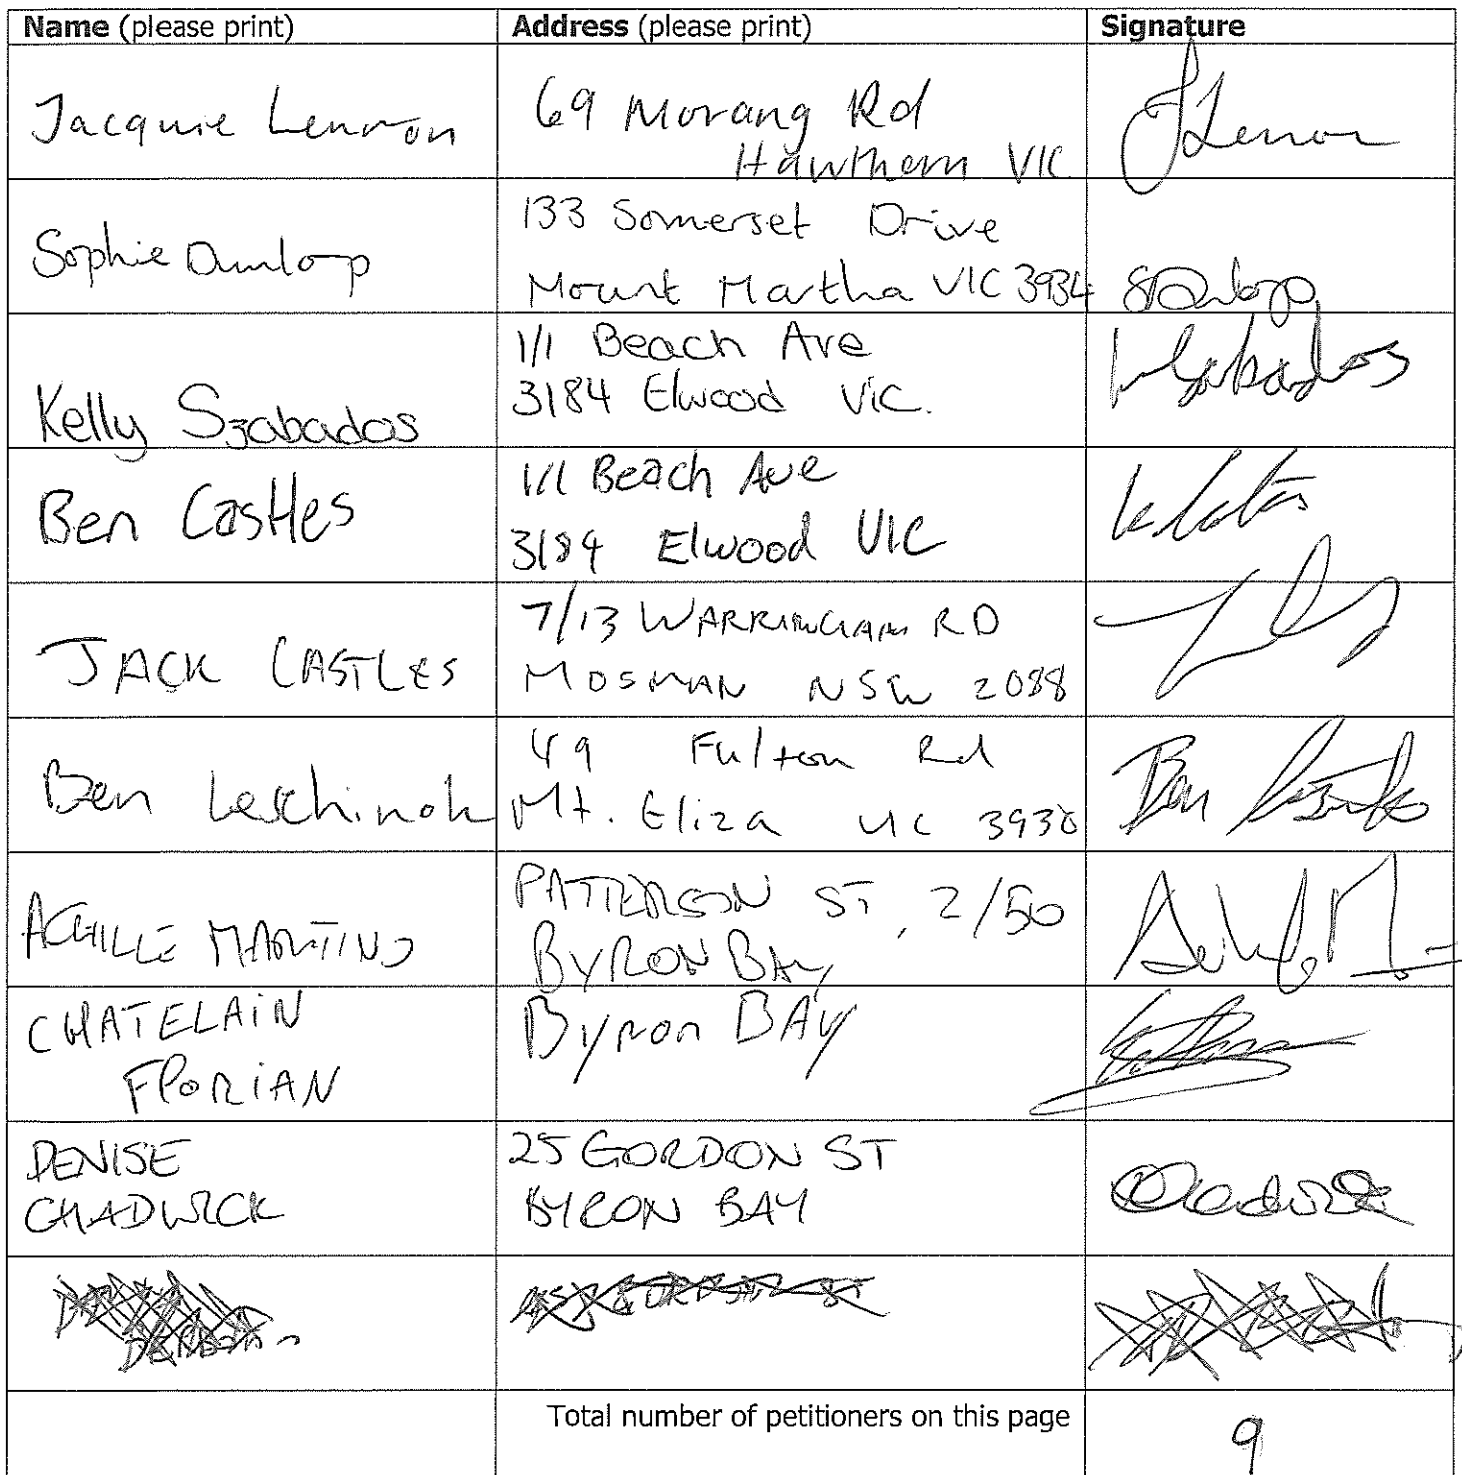 Name (please print) Address (please print) Signature
Jacquie Lennon 69 Morang Rd
Hawthorn VIC
Sophie Dunlop 133 Somerset Drive
Mount Martha VIC 3934 SDunlop
Kelly Szabados 1/1 Beach Ave
3184 Elwood VIC.
Ben Castles 1/1 Beach Ave
3184 Elwood VIC
JACK CASTLES 7/13 WARRINGHAM RD
MOSMAN NSW 2088
Ben 49 Fulton Rd
Mt. Eliza VIC 3930 Ben
ACHILLE MARTINO PATTERSON ST, 2/50
BYRON BAY
CHATELAIN Byron BAY
FLORIAN
DENISE 25 GORDON ST
CHADWICK BYRON BAY Chadwick
Total number of petitioners on this page 9